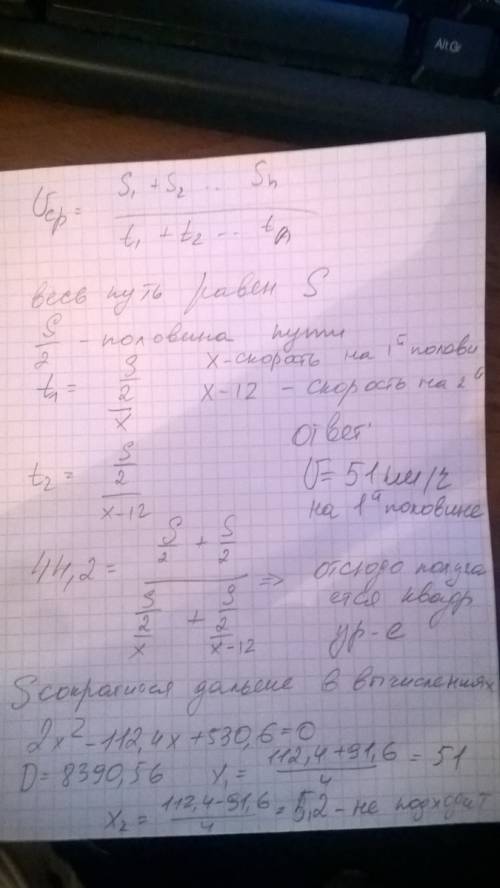 Alt Gr
Uср = (S₁ + S₂ .. Sn) / (t₁ + t₂ ... tn)
весь путь равен S
S/2 - половина пути
x - скорать на 1ᵃ полови
t₁ = (S/2)/x
x-12 - скорость на 2ᵃ
t₂ = (S/2)/(x-12)
ответ:
U = 51 км/ч
на 1ᵃ половине
44,2 = (S/2 + S/2) / ((S/2)/x + (S/2)/(x-12)) ⇒ отсюда получа
ется квадр
ур-е
S сократится дальше в вычислениях
2x² - 112,4x + 530,6 = 0
D = 8390,56 x₁ = (112,4 + 91,6)/4 = 51
x₂ = (112,4 - 91,6)/4 = 5,2 - не подходит